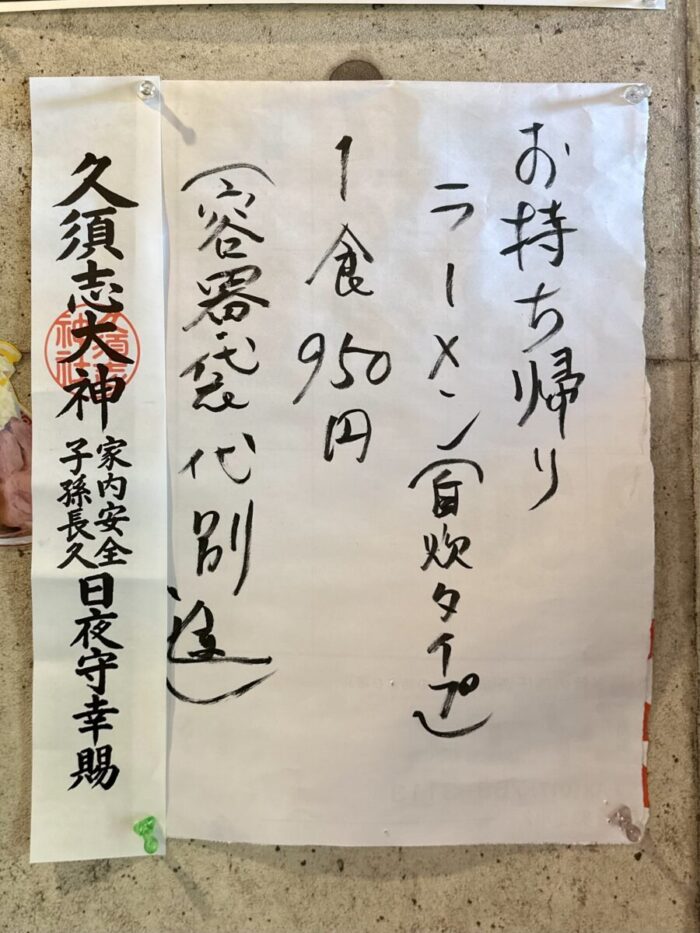 お持ち帰り
ラーメン(自炊タイプ)
1食950円
(容器袋代別途)
久須志大神
家内安全
子孫長久
日夜守幸賜
久須志
神社